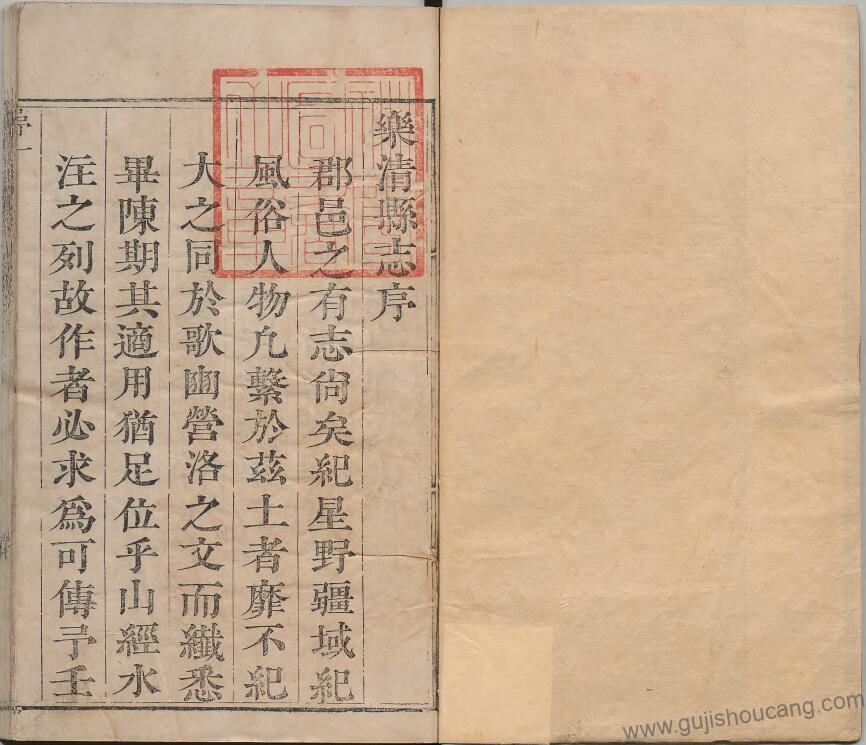 樂清縣志序
郡邑之有志尙矣紀星野疆域紀
風俗人物凢繫於茲土者靡不紀
大之同於歌豳營洛之文而纖悉
畢陳期其適用猶足位乎山經水
注之列故作者必求爲可傳予壬
序一
www.gujishoucang.com